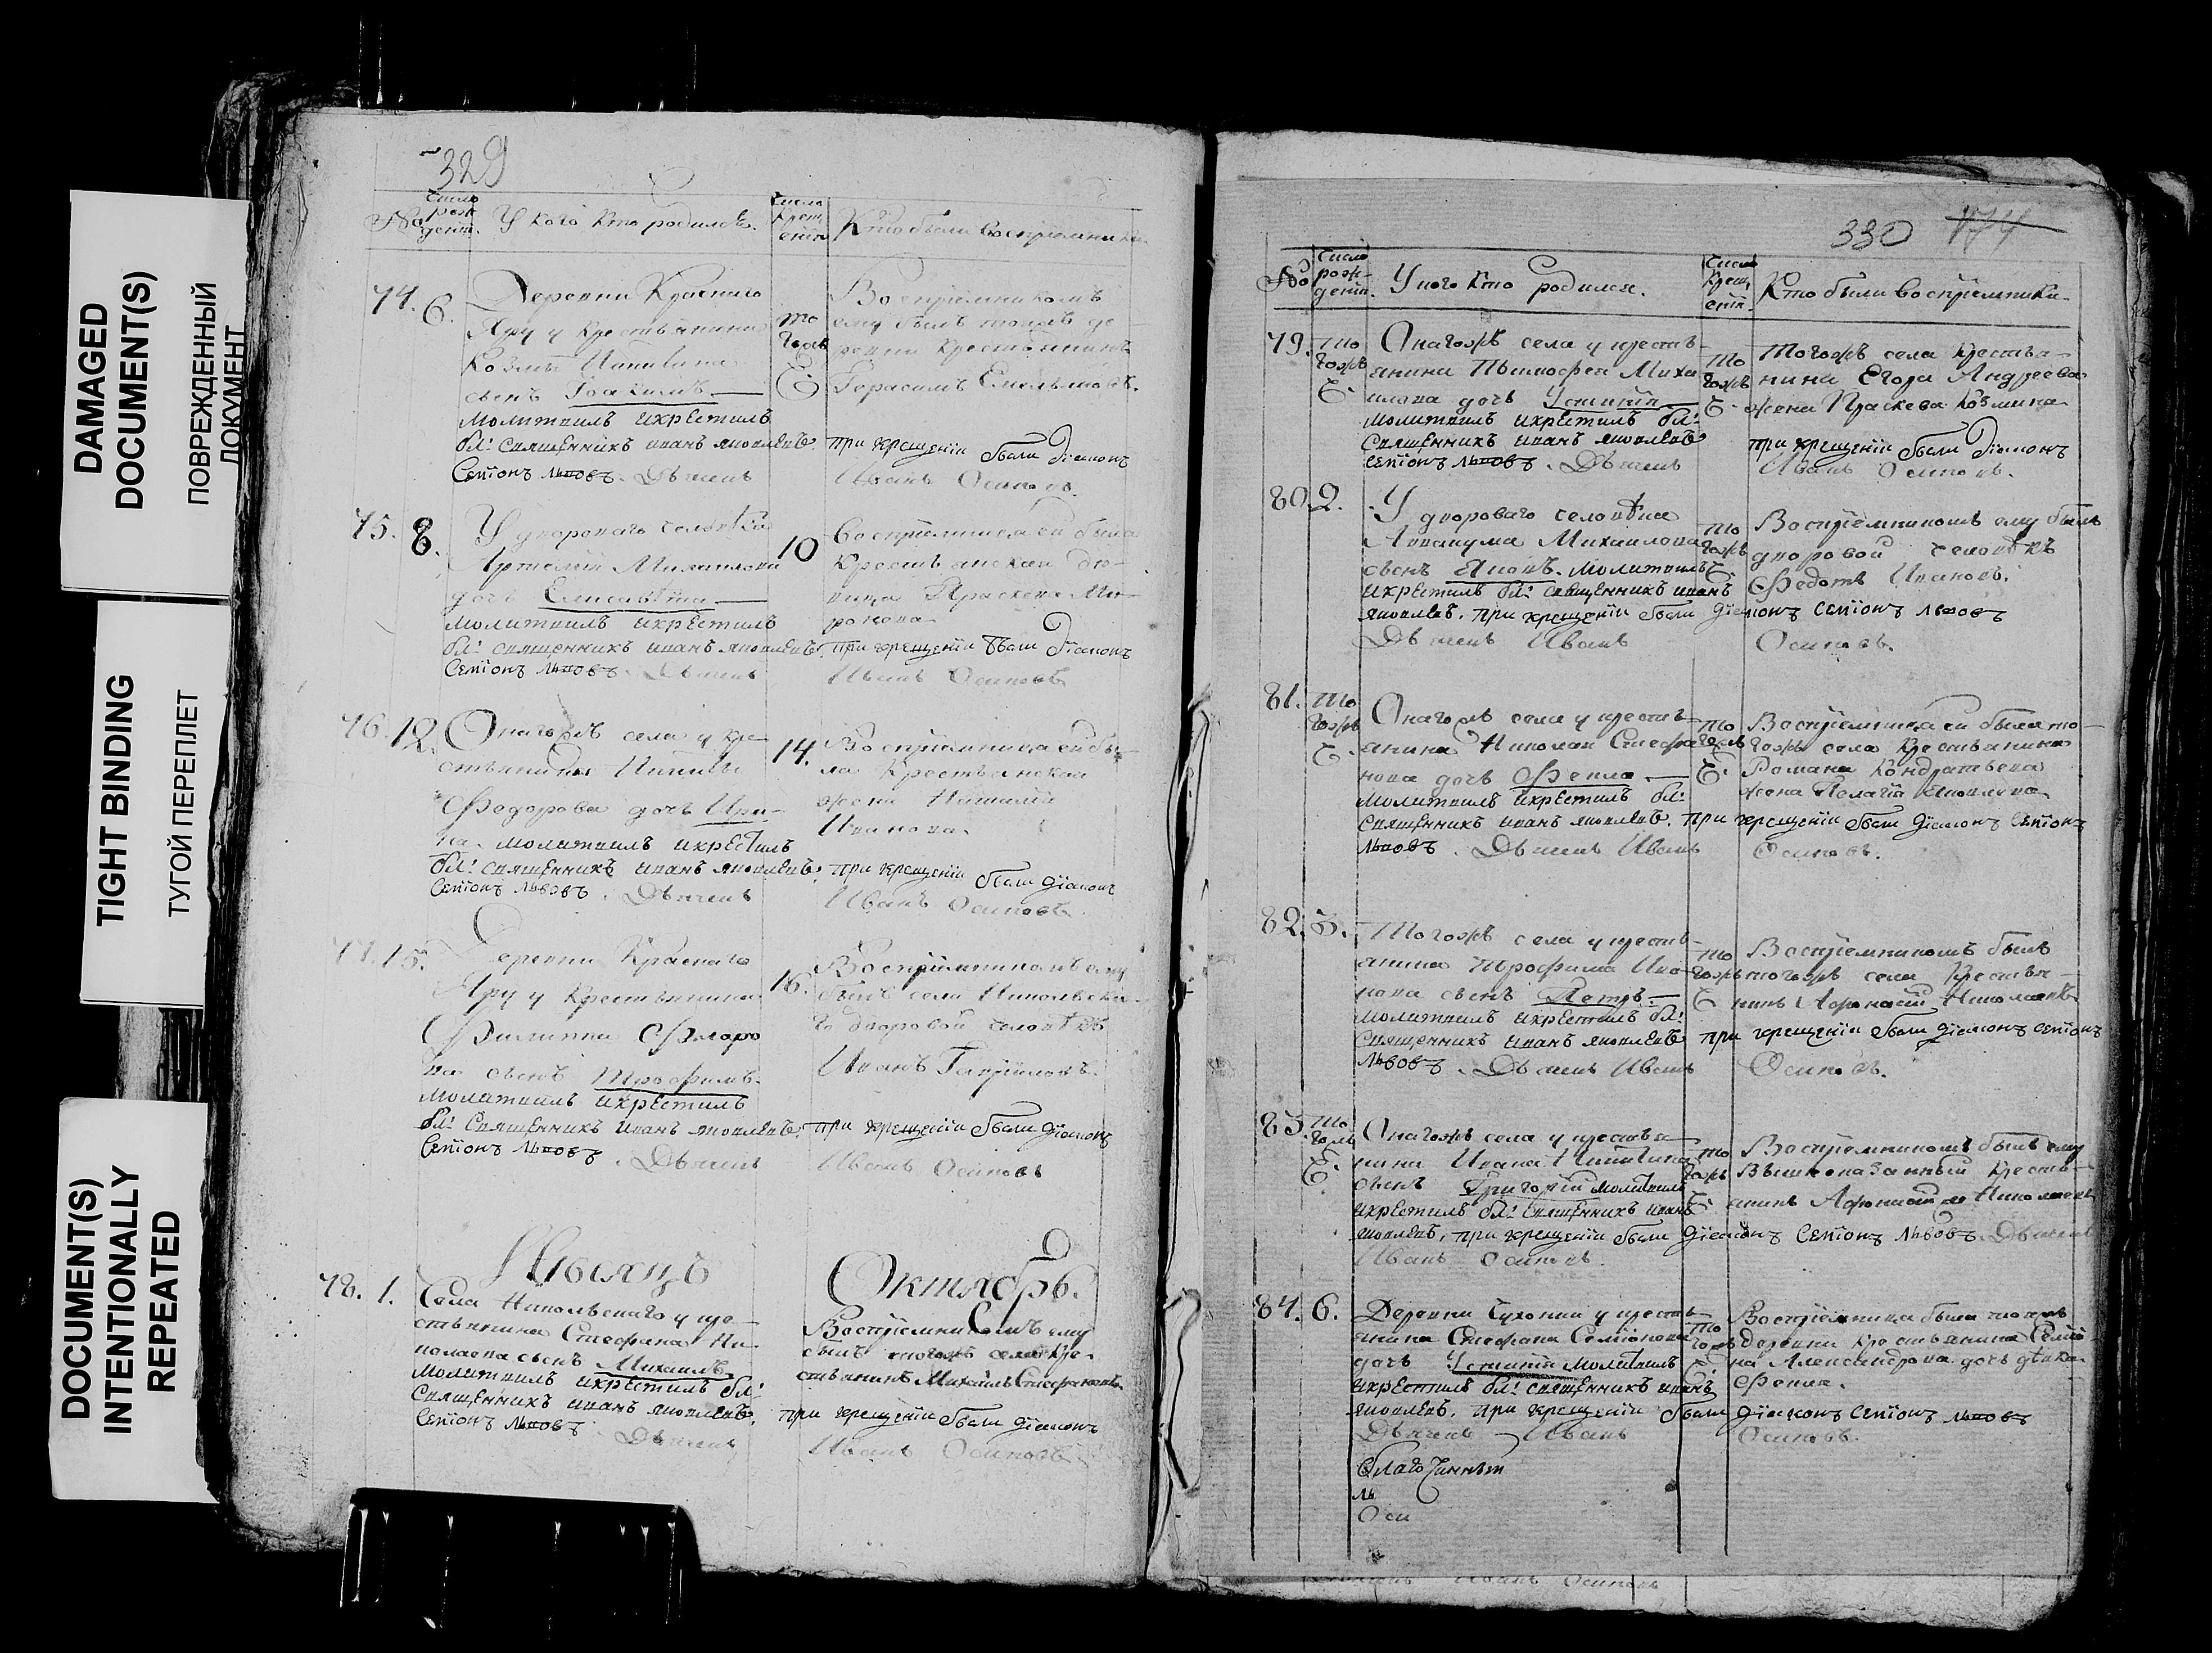 DAMAGED
DOCUMENT(S)
ПОВРЕЖДЕННЫЙ
ДОКУМЕНТ
TIGHT BINDING
ТУГОЙ ПЕРЕПЛЕТ
DOCUMENT(S)
INTENTIONALLY
REPEATED
329
№ Число рождени. У кого кто родился. Числа крещенія Кто были восприемники
74. 6. Деревни Краснаго
Яру у крестьянина
Козмы Никитина
сынъ Іоакимъ
молитвилъ икрестилъ
бл: священникъ иванъ яковлевъ.
Семіонъ львовъ. Дьячекъ
тогожъ Восприемникомъ
ему былъ тояжъ де
ревни крестьянинъ
Герасимъ Емельяновъ.
при крещеніи были діаконъ
Иванъ Осиповъ.
75. 8. У двороваго человѣка
Артемія Михаилова
дочь Елисавета
молитвилъ икрестилъ
бл: священникъ иванъ яковлевъ.
Семіонъ львовъ. Дьячекъ
10 восприемница ей была
крестьянская дѣ-
вица Праскева Ми-
ронова
при крещеніи были діаконъ
Иванъ Осиповъ
76. 12. Онагожъ села у кре-
стьянина Никиты
Федорова дочь Ири-
на. молитвилъ икрестилъ
бл: священникъ иванъ яковлевъ.
Семіонъ львовъ. Дьячекъ
14. Восприемница ей бы-
ла крестьянская
жена Наталія
Иванова
при крещеніи были діаконъ
Иванъ Осиповъ
77. 15. Деревни Краснаго
Яру у крестьянина
Филиппа Фларо
ва сынъ Трофимъ.
молитвилъ икрестилъ
бл: Священникъ иванъ яковлевъ.
Семіонъ львовъ. Дьячекъ
16. Восприемникомъ ему
былъ села Никольска-
го дворовой человѣкъ
Иванъ Гавриловъ.
при крещеніи были діаконъ
Иванъ Осиповъ
Мѣсяцъ Октябрь.
78. 1. Села Никольскаго у кре-
стьянина Стефана Ни-
колаева сынъ Михаилъ
молитвилъ икрестилъ бл:
Священникъ иванъ яковлевъ.
Семіонъ львовъ. Дьячекъ
Восприемникомъ ему
былъ тогожъ села кре-
стьянинъ Михаилъ Стефановъ.
при крещеніи были діаконъ
Иванъ Осиповъ
330 174
№ Число рожденія. У кого кто родился. Число крещенія. Кто были восприемники.
79. тогожъ Онагожъ села у кресть-
янина Тимофея Миха
илова дочь Устинія
молитвилъ икрестилъ бл:
Священникъ иванъ яковлевъ
Семіонъ львовъ. Дьячекъ
тогожъ тогожъ села крестья-
нина Егора Андреева
жена Праскева Козмина
при крещеніи были діаконъ
Иванъ Осиповъ.
80. 2. У двороваго человѣка
Аввакума Михаилова
сынъ Яковъ. молитвилъ
икрестилъ бл: священникъ иванъ
яковлевъ. при крещеніи были діаконъ Семіонъ львовъ
Дьячекъ Иванъ Осиповъ.
тогожъ Восприемникомъ ему былъ
дворовой человѣкъ
Федотъ Ивановъ.
81. тогожъ Онагожъ села у кресть-
янина Николая Стефа
нова дочь Фекла
молитвилъ икрестилъ бл:
Священникъ иванъ яковлевъ. при крещеніи были діаконъ Семіонъ
львовъ. Дьячекъ Иванъ Осиповъ.
тогожъ Восприемница ей была то-
гожъ села крестьянина
Романа Кондратьева
жена Пелагія Яковлева
82. 3. Тогожъ села у кресть-
янина Трофима Ива
нова сынъ Петръ.
молитвилъ икрестилъ бл:
Священникъ иванъ яковлевъ при крещеніи были діаконъ семіонъ
львовъ. Дьячекъ Иванъ Осиповъ.
тогожъ Восприемникомъ былъ
тогожъ села крестья-
нинъ Афонасій Николаевъ
83. тогожъ Онагожъ села у крестья-
нина Ивана Никитина
сынъ Григорій молитвилъ
икрестилъ бл: священникъ иванъ
яковлевъ. при крещеніи были діаконъ Семіонъ львовъ. Дьячекъ
Иванъ Осиповъ.
тогожъ Восприемникомъ былъ ему
вышеписанный кресть-
янинъ Афонасій Николаевъ
84. 6. Деревни у кресть-
янина Стефана Семіонова
дочь Устинія молитвилъ
икрестилъ бл: священникъ иванъ
яковлевъ. при крещеніи были діаконъ Семіонъ львовъ
Дьячекъ Иванъ Осиповъ.
тогожъ Восприемница была тояжъ
деревни крестьянина Семіо
на Александрова дочь дѣвка
Фекла.
благочинный
ль
Оси
Иванъ Осиповъ